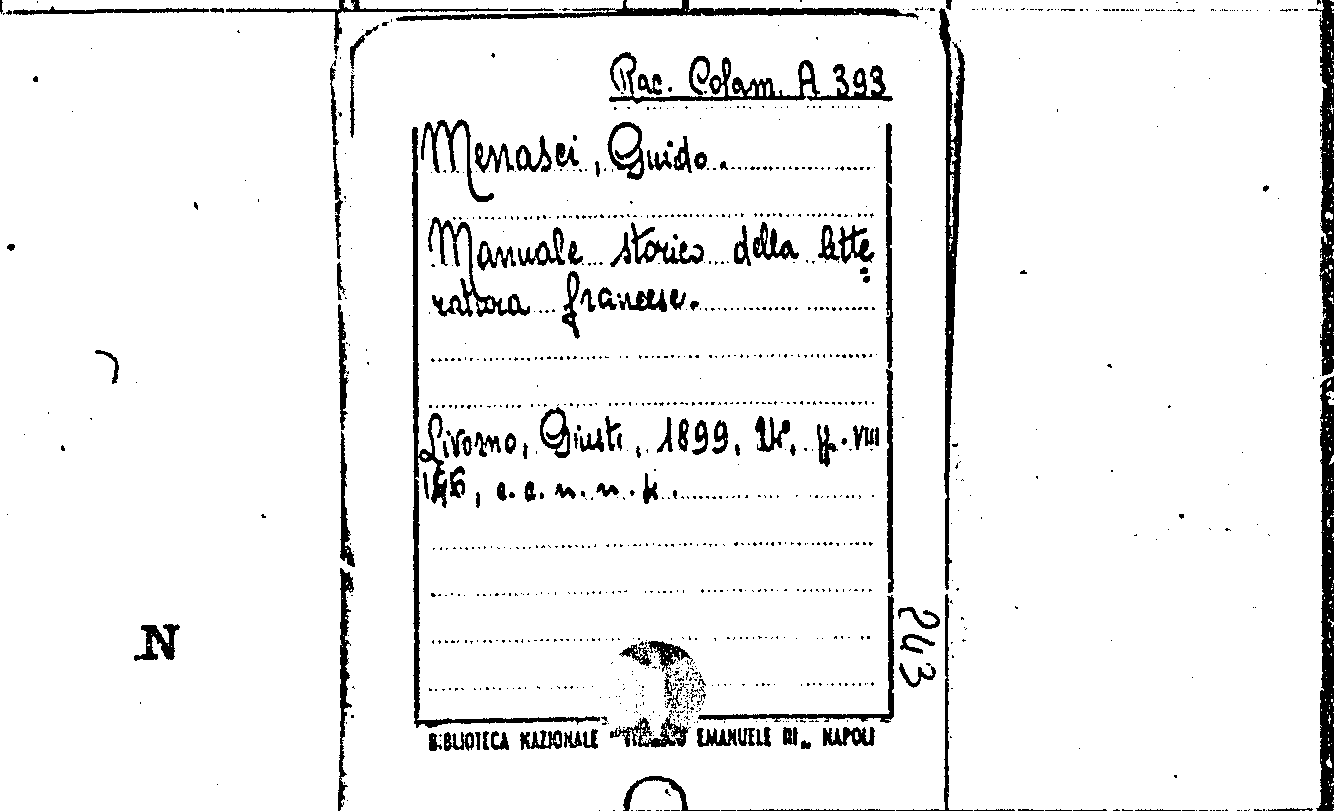 Rac. Colam. A 393
Menasci, Guido.
Manuale storico della lette=
ratura francese.
Livorno, Giusti, 1899, 16°, pp. VIII
, c. c. n. n. p.
243
N
BIBLIOTECA NAZIONALE "VITTORIO EMANUELE III„ NAPOLI